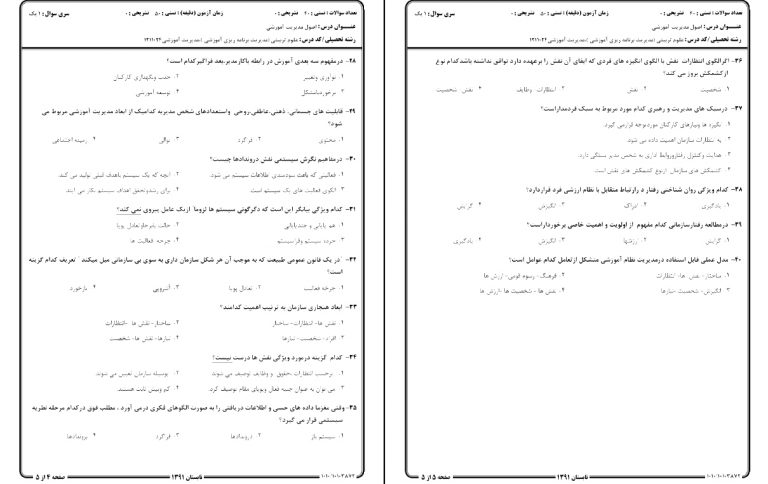 تعداد سوالات : تستی : ۴۰ تشریحی : ۰
زمان آزمون (دقیقه) : تستی : ۵۰ تشریحی : ۰
سری سوال : ۱ یک
عنـــوان درس : اصول مدیریت آموزشی
رشته تحصیلی/کد درس : علوم تربیتی (مدیریت برنامه ریزی آموزشی )،مدیریت آموزشی ۱۲۱۱۰۲۴
۲۸- درمفهوم سه بعدی آموزش در رابطه باکارمدیر،بعد فراگیرکدام است؟
۱. نوآوری وتغییر
۲. جذب ونگهداری کارکنان
۳. برخوردبامشکل
۴. توسعه آموزشی
۲۹- قابلیت های جسمانی، ذهنی،عاطفی،روحی واستعدادهای شخص مدیربه کدامیک از ابعاد مدیریت آموزشی مربوط می
شود؟
۱. محتوی
۲. فراگرد
۳. توالی
۴. زمینه اجتماعی
۳۰- درمفاهیم نگرش سیستمی نقش دروندادها چیست؟
۱. فعالیتی که بافت سودمندی اطلاعات سیستم می شود.
۲. آنچه که یک سیستم باهدف قبلی تولید می کند.
۳. الگوی فعالیت های یک سیستم است.
۴. برای رشدوتحقق اهداف سیستم بکار می آیند.
۳۱- کدام ویژگی بیانگر این است که دگرگونی سیستم ها لزوما ازیک عامل پیروی نمی کند؟
۱. هم پایانی و چندپایانی
۲. حالت پابرجاوتعادل پویا
۳. خرده سیستم وفراسیستم
۴. چرخه فعالیت ها
۳۲- "در یک قانون عمومی طبیعت که به موجب آن هر شکل سازمان داری به سوی بی سازمانی میل میکند " تعریف کدام گزینه
است؟
۱. چرخه فعالیت
۲. تعادل پویا
۳. آنتروپی
۴. بازخورد
۳۳- ابعاد هنجاری سازمان به ترتیب اهمیت کدامند؟
۱. نقش ها- انتظارات- ساختار
۲. ساختار- نقش ها -انتظارات
۳. افراد- شخصیت- نیازها
۴. نیازها- نقش ها- شخصیت
۳۴- کدام گزینه درمورد ویژگی نقش ها درست نیست؟
۱. برحسب انتظارات ،حقوق و وظایف توصیف می شوند.
۲. بوسیله سازمان تعیین می شوند.
۳. می توان به عنوان جنبه فعال وپویای مقام توصیف کرد.
۴. کم وبیش ثابت هستند.
۳۵- وقتی مغزما داده های حسی و اطلاعات دریافتی را به صورت الگوهای فکری درمی آورد ، مطلب فوق درکدام مرحله نظریه
سیستمی قرار می گیرد؟
۱. سیستم باز
۲. دروندادها
۳. فراگرد
۴. بروندادها
۱۰۱۰/۱۰۱۰۳۸۷۲
تابستان ۱۳۹۱
صفحه ۴ از ۵
تعداد سوالات : تستی : ۴۰ تشریحی : ۰
زمان آزمون (دقیقه) : تستی : ۵۰ تشریحی : ۰
سری سوال : ۱ یک
عنـــوان درس : اصول مدیریت آموزشی
رشته تحصیلی/کد درس : علوم تربیتی (مدیریت برنامه ریزی آموزشی )،مدیریت آموزشی ۱۲۱۱۰۲۴
۳۶- اگرالگوی انتظارات نقش با الگوی انگیزه های فردی که ایفای آن نقش را برعهده دارد توافق نداشته باشدکدام نوع
ازکشمکش بروز می کند؟
۱. شخصیت
۲. نقش
۳. انتظارات- وظایف
۴. نقش- شخصیت
۳۷- درسبک های مدیریت و رهبری کدام مورد مربوط به سبک فردمداراست؟
۱. انگیزه ها ونیازهای کارکنان موردتوجه قرارمی گیرد.
۲. به انتظارات سازمان اهمیت داده می شود.
۳. هدایت وکنترل رفتاروروابط اداری به شخص مدیر بستگی دارد.
۴. کشمکش های سازمان ازنوع کشمکش های نقش است.
۳۸- کدام ویژگی روان شناختی رفتار د رارتباط متقابل با نظام ارزشی فرد قراردارد؟
۱. یادگیری
۲. ادراک
۳. انگیزش
۴. گرایش
۳۹- درمطالعه رفتارسازمانی کدام مفهوم از اولویت و اهمیت خاصی برخورداراست؟
۱. گرایش
۲. ارزشها
۳. انگیزش
۴. یادگیری
۴۰- مدل عملی قابل استفاده درمدیریت نظام آموزشی متشکل ازتعامل کدام عوامل است؟
۱. ساختار- نقش ها- انتظارات
۲. فرهنگ- رسوم قومی- ارزش ها
۳. انگیزش- شخصیت -نیازها
۴. نقش ها - شخصیت ها -ارزش ها
۱۰۱۰/۱۰۱۰۳۸۷۲
تابستان ۱۳۹۱
صفحه ۵ از ۵